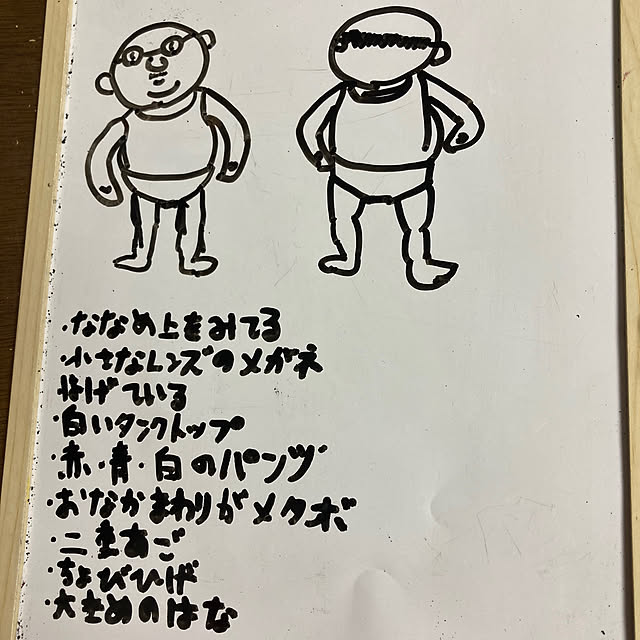 ・ななめ上をみてる
・小さなレンズのメガネ
はげている
・白いタンクトップ
・赤・青・白のパンツ
・おなかまわりがメタボ
・二重あご
・ちょびひげ
・大きめのはな